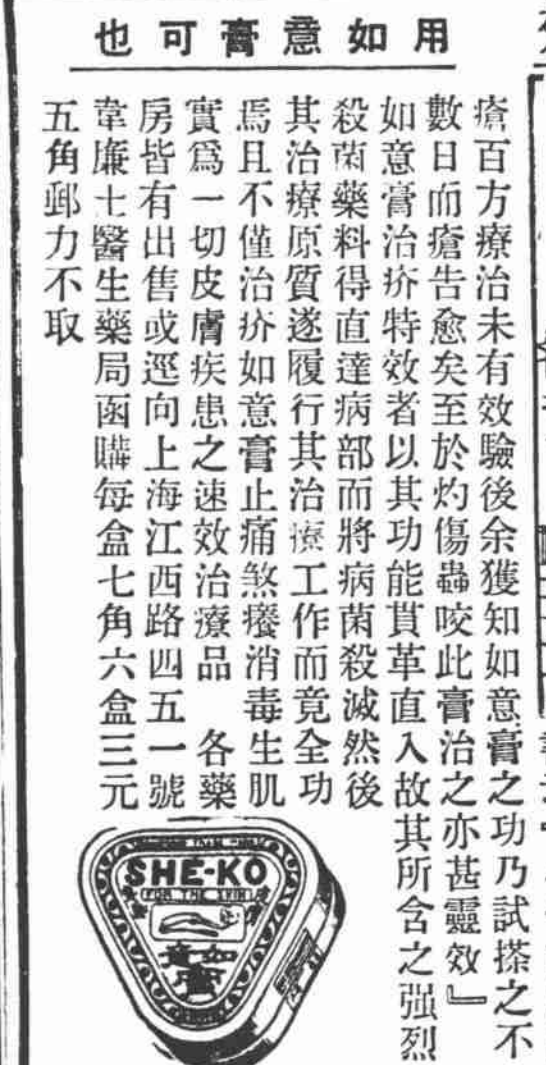 用如意膏可也
瘡百方療治未有效驗後余獲知如意膏之功乃試搽之不
數日而瘡告愈矣至於灼傷蟲咬此膏治之亦甚靈效』
如意膏治疥特效者以其功能貫革直入故其所含之强烈
殺菌藥料得直達病部而將病菌殺滅然後
其治療原質遂履行其治療工作而竟全功
焉且不僅治疥如意膏止痛煞癢消毒生肌
實爲一切皮膚疾患之速效治療品　各藥
房皆有出售或逕向上海江西路四五一號
韋廉士醫生藥局函購每盒七角六盒三元
五角郵力不取
SHE-KO
FOR THE SKIN
如意膏